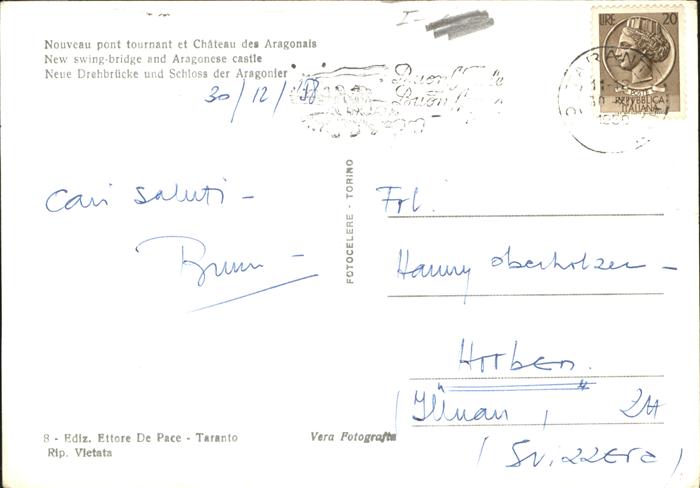 Nouveau pont tournant et Château des Aragonais
New swing-bridge and Aragonese castle
Neue Drehbrücke und Schloss der Aragonier
30/12/58
LIRE 20
POSTE
REPVBBLICA
ITALIANA
Buon
Buon
cari saluti -
FOTOCELERE - TORINO
Frl.
Hanny Oberholzer -
(Illnau, ZH
(Svizzera)
8 - Ediz. Ettore De Pace - Taranto
Rip. Vietata
Vera Fotografia